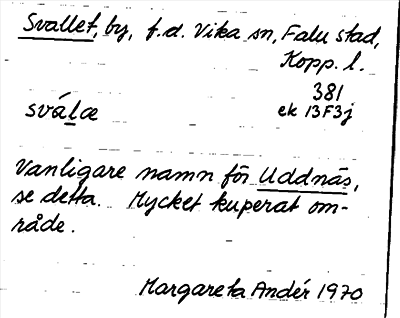 Svallet, by, f.d. Vika sn, Falu stad,
Kopp. l.
381
sválæ ek 13F3j
Vanligare namn för Uddnäs,
se detta. Mycket kuperat om-
råde.
Margareta Andér 1970